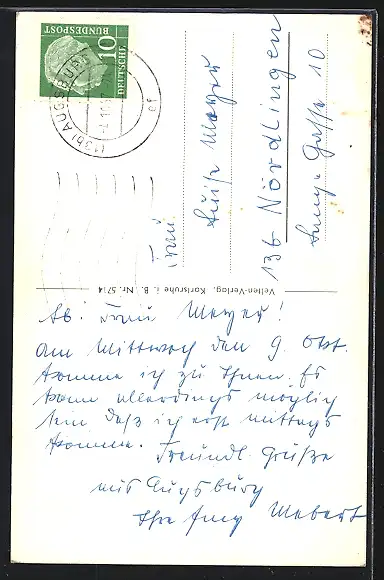 DEUTSCHE
BUNDESPOST
10
(13b) AUGSBURG
Frau
Luise Meyer
13b Nördlingen
Gasse 10
Velten-Verlag, Karlsruhe i. B., Nr. 5714
Lb. Frau Meyer!
Am Mittwoch den 9. Okt.
komme ich zu Ihnen. Es
kann allerdings möglich
sein, daß ich erst mittags
komme.
Freundl. Grüße
aus Augsburg
Ihre